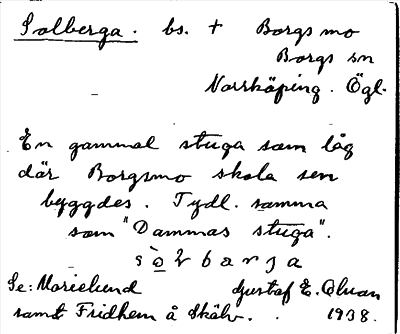 Solberga. bs. + Borgsmo
Borgs sn
Norrköping. Ögl.
En gammal stuga som låg
där Borgsmo skola sen
byggdes. Tydl. samma
som "Dammas stuga".
Se: Marielund Gustaf E. Olsson
samt Fridhem å Skälv. 1938.